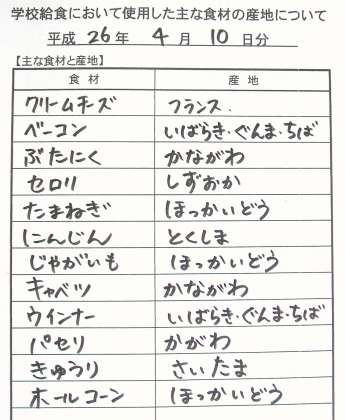 学校給食において使用した主な食材の産地について
平成 26 年 4 月 10 日分
【主な食材と産地】
食材 産地
クリームチーズ フランス.
ベーコン いばらき・ぐんま・ちば
ぶたにく かながわ
セロリ しずおか
たまねぎ ほっかいどう
にんじん とくしま
じゃがいも ほっかいどう
キャベツ かながわ
ウインナー いばらき・ぐんま・ちば
パセリ かがわ
きゅうり さいたま
ホールコーン ほっかいどう